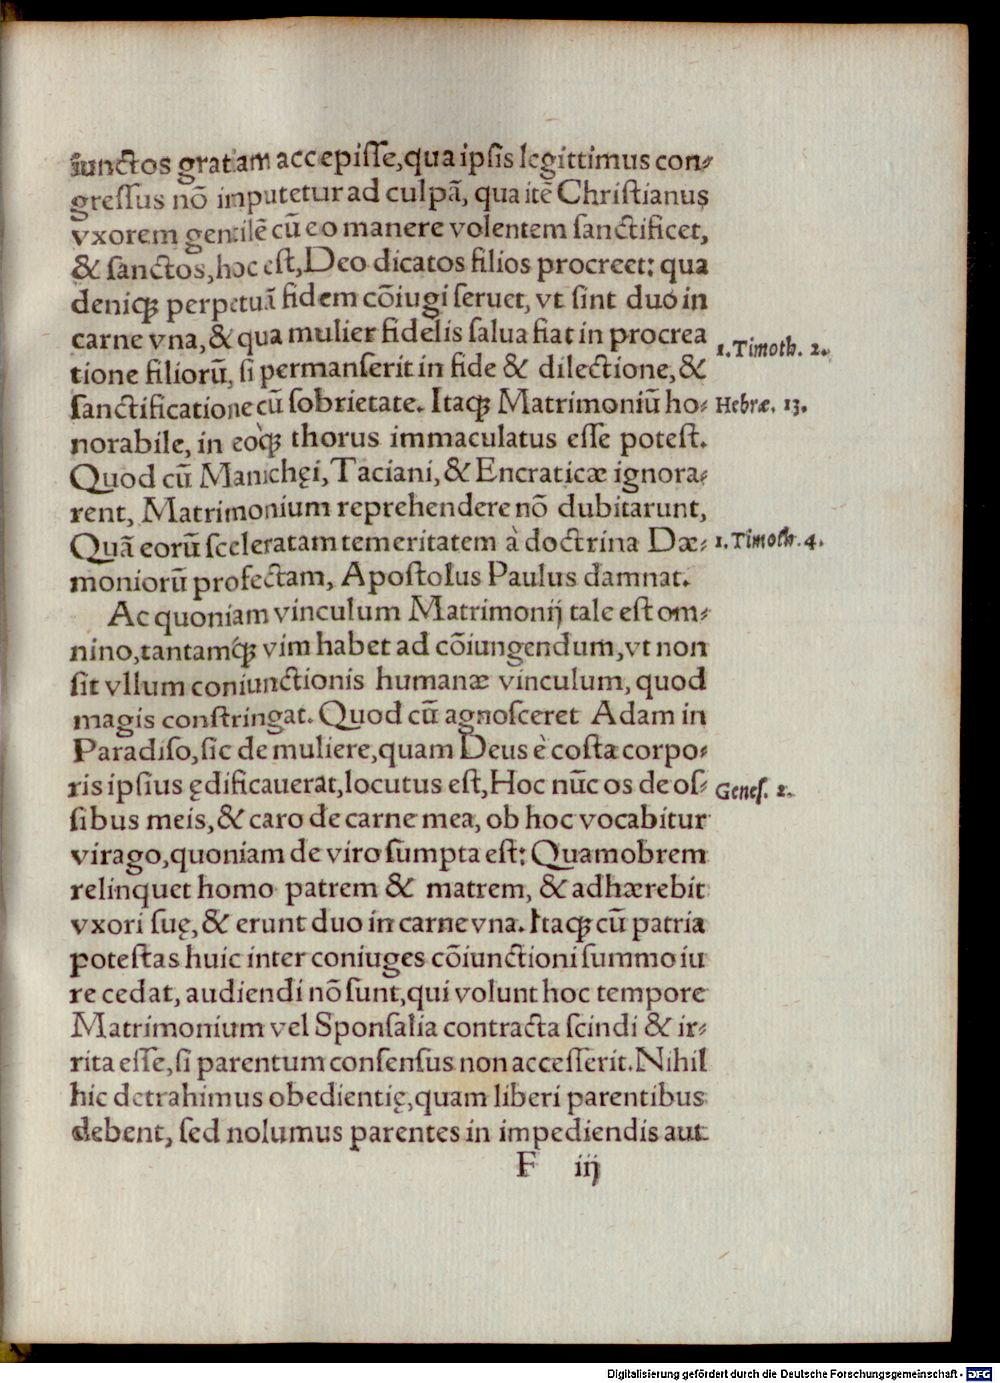 iunctos gratiam accepisse, qua ipsis legittimus con-
gressus nō imputetur ad culpā, qua itē Christianus
vxorem gentilē cū eo manere volentem sanctificet,
& sanctos, hoc est, Deo dicatos filios procreet: qua
deniqȝ perpetuā fidem cōiugi seruet, vt sint duo in
carne vna, & qua mulier fidelis salua fiat in procrea
tione filiorū, si permanserit in fide & dilectione, &
sanctificatione cū sobrietate. Itaqȝ Matrimoniū ho-
norabile, in eòqȝ thorus immaculatus esse potest.
Quod cū Manichęi, Taciani, & Encraticæ ignora-
rent, Matrimonium reprehendere nō dubitarunt,
Quā eorū sceleratam temeritatem à doctrina Dæ-
moniorū profectam, Apostolus Paulus damnat.
1. Timoth. 2.
Hebræ. 13.
1. Timoth. 4.
Ac quoniam vinculum Matrimonij tale est om-
nino, tantamq́ȝ vim habet ad cōiungendum, vt non
sit vllum coniunctionis humanæ vinculum, quod
magis constringat. Quod cū agnosceret Adam in
Paradiso, sic de muliere, quam Deus è costa corpo-
ris ipsius ędificauerat, locutus est, Hoc nūc os de os-
sibus meis, & caro de carne mea, ob hoc vocabitur
virago, quoniam de viro sumpta est: Quamobrem
relinquet homo patrem & matrem, & adhærebit
vxori suę, & erunt duo in carne vna. Itaqȝ cū patria
potestas huic inter coniuges cōiunctioni summo iu
re cedat, audiendi nō sunt, qui volunt hoc tempore
Matrimonium vel Sponsalia contracta scindi & ir-
rita esse, si parentum consensus non accesserit. Nihil
hic detrahimus obedientię, quam liberi parentibus
debent, sed nolumus parentes in impediendis aut
Genes. 2.
F iij
Digitalisierung gefördert durch die Deutsche Forschungsgemeinschaft - DFG